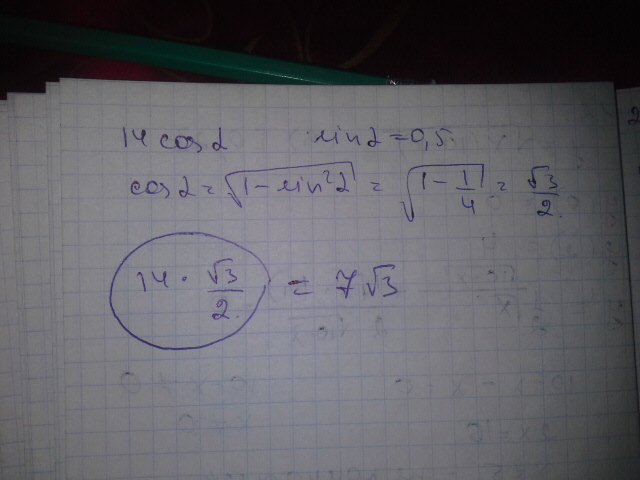 14 cos α sin α = 0,5.
cos α = √(1 − sin²α) = √(1 − 1/4) = √3/2.
14 · √3/2. = 7√3